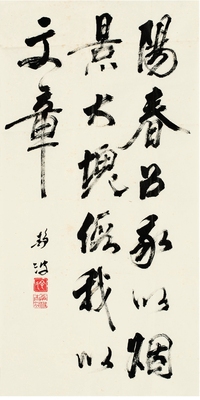 陽春召我以烟
景大塊假我以
文章
静波